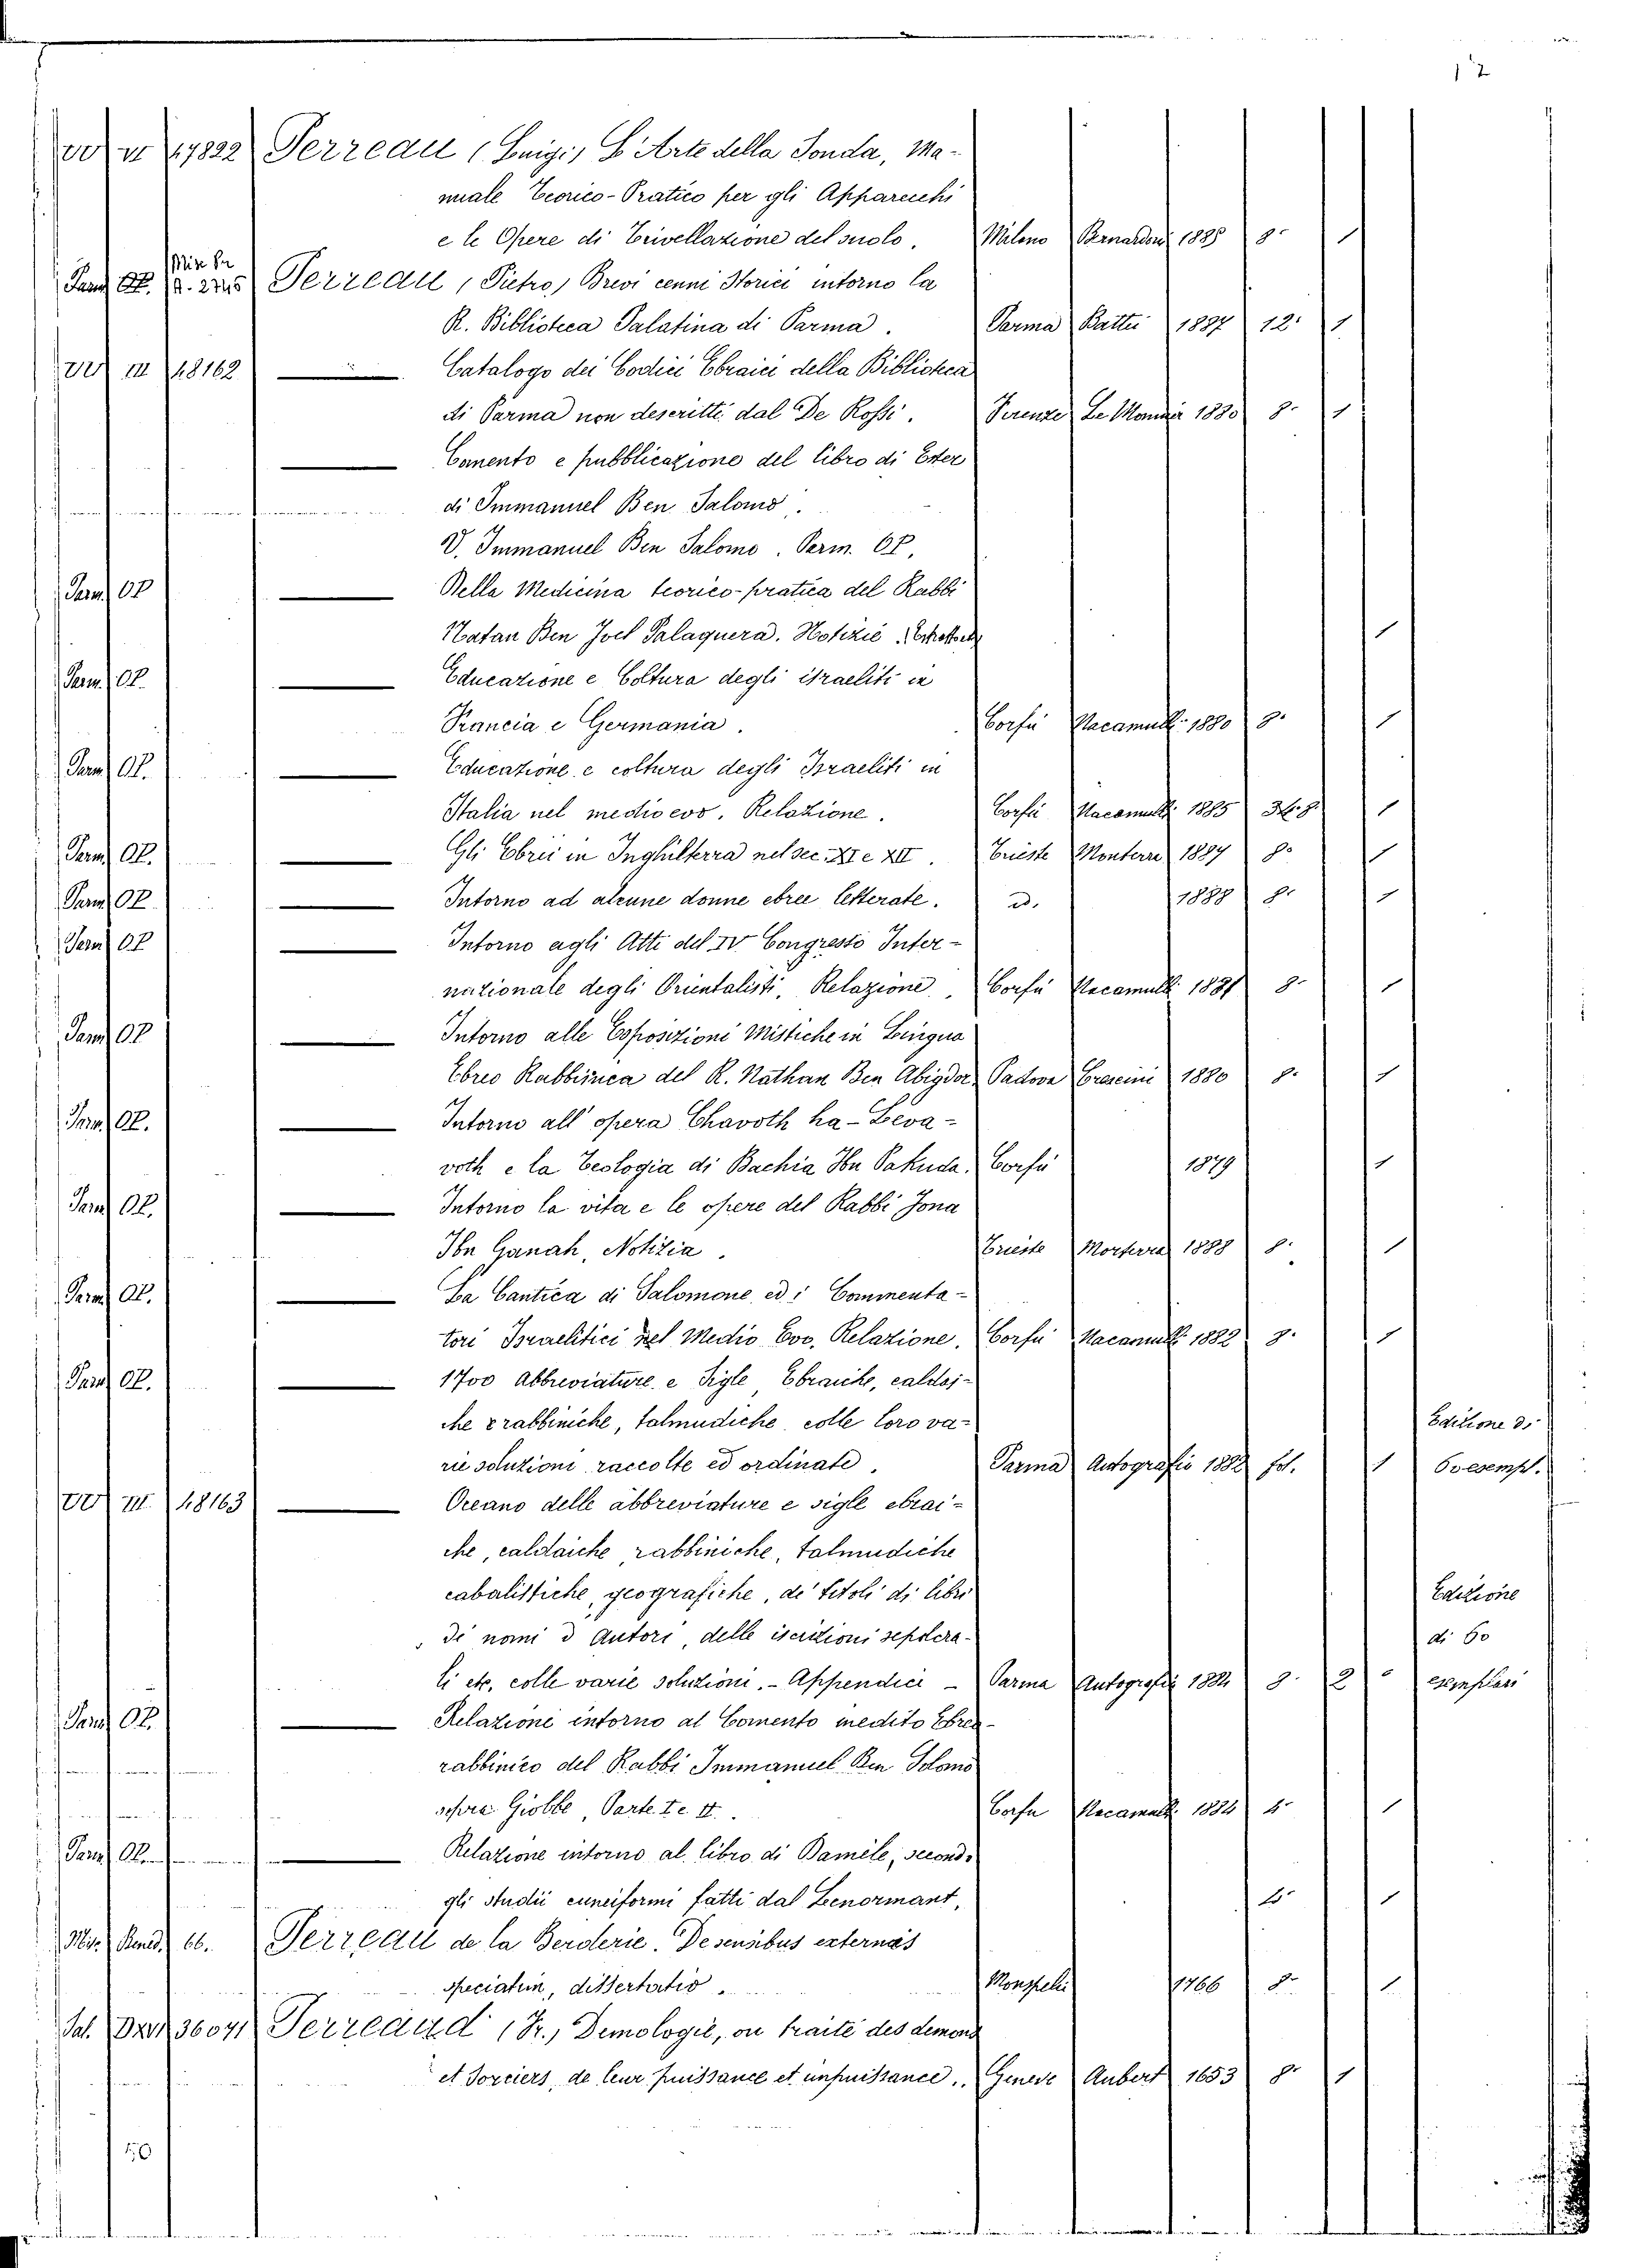 12
VI 47822 Perreau (Luigi) L'Arte della Sonda, Ma-
nuale Teorico-Pratico per gli Apparecchi
e le Opere di Trivellazione del suolo. Milano Bernardoni 1885 8° 1
Misc Er
Parm OP. 8. 2745 Perreau (Pietro) Brevi cenni Storici intorno la
R. Biblioteca Palatina di Parma. Parma Battei 1887 12° 1
III 48162 — Catalogo dei Codici Ebraici della Biblioteca
di Parma non descritti dal De Rossi. Firenze Le Monnier 1880 8° 1
— Comento e pubblicazione del libro di Ester
di Immanuel Ben Salomo.
V. Immanuel Ben Salomo. Parm. OP.
Parm. OP — Della Medicina teorico-pratica del Rabbi
Natan Ben Joel Palaquera. Notizie. 1
Parm. OP. — Educazione e Coltura degli israeliti in
Francia e Germania. Corfù Nacamulli 1880 8° 1
Parm OP. — Educazione e coltura degli Israeliti in
Italia nel medio evo. Relazione. Corfù Nacamulli 1885 8° 1
Parm OP. — Gli Ebrei in Inghilterra nel sec. XI e XII. Trieste Monterra 1887 8° 1
Parm OP. — Intorno ad alcune donne ebree letterate. id. 1888 8° 1
Parm OP — Intorno agli Atti del IV Congresso Inter-
nazionale degli Orientalisti, Relazione. Corfù Nacamulli 1881 8° 1
Parm OP — Intorno alle Esposizioni Mistiche in Lingua
Ebreo Rabbinica del R. Nathan Ben Abigdor. Padova Crescini 1880 8° 1
Parm OP. — Intorno all'opera Chavoth ha-Leva-
voth e la Teologia di Bachia Ibn Pakuda. Corfù 1879 1
Parm OP. — Intorno la vita e le opere del Rabbi Jona
Ibn Ganah, Notizia. Trieste Morterra 1888 8° 1
Parm OP. — La Cantica di Salomone ed i Commenta-
tori Israelitici nel Medio Evo, Relazione. Corfù Nacamulli 1882 8° 1
Parm OP. — 1700 Abbreviature e Sigle, Ebraiche, caldai-
che rabbiniche, talmudiche colle loro va- Edizione di
rie soluzioni raccolte ed ordinate. Parma Autografie 1882 fol. 1 60 esempl.
III 48163 — Oceano delle abbreviature e sigle ebrai-
che, caldaiche rabbiniche, talmudiche
cabalistiche, geografiche, de' titoli di libri Edizione
, de' nomi d'Autori, delle iscrizioni sepolcra- di 60
li etc. colle varie soluzioni. - Appendici - Parma Autografie 1884 8° 2 esemplari
Parm OP. — Relazione intorno al Comento inedito Ebreo-
rabbinico del Rabbi Immanuel Ben Solomo
sopra Giobbe, Parte I e II. Corfù Nacamulli 1884 4° 1
Parm OP. — Relazione intorno al libro di Daniele, secondo
gli studii cuneiformi fatti dal Lenormant. 4° 1
Misc. Rened. 66. Perreau de la Berderie. De sensibus externis
speciatim, dissertatio. Monspelii 1766 8° 1
Sal. 36071 Perreaud (Fr.) Demologie, ou traité des demons
et Sorciers, de leur puissance et impuissance. Geneve Aubert 1653 8° 1
50